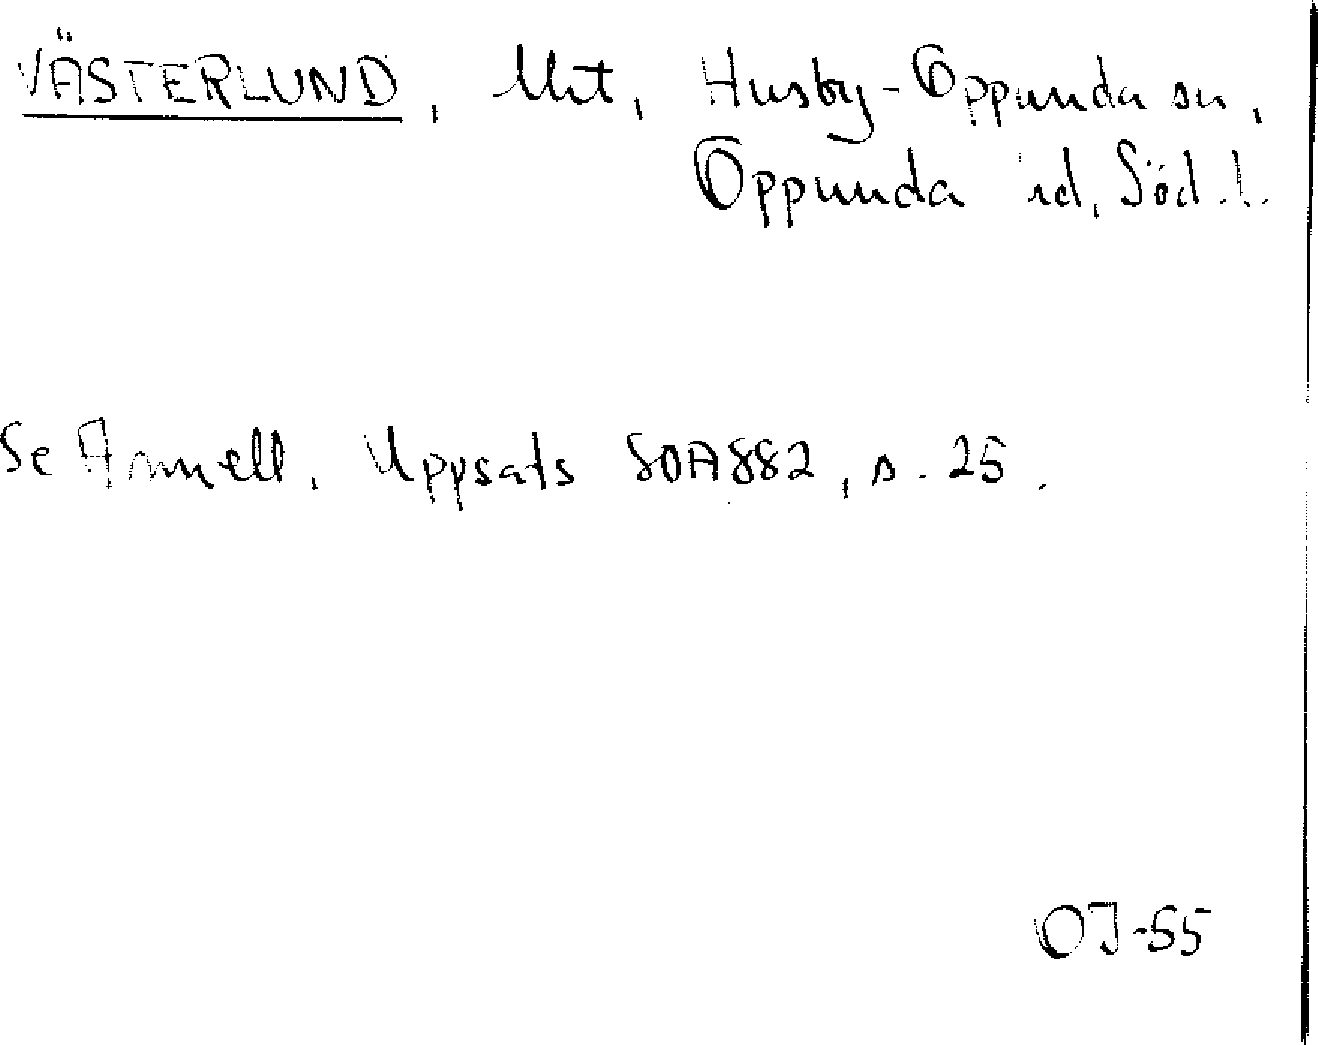 VÄSTERLUND, Mt, Husby-Oppunda sn,
Oppunda hd, Söd.l.
Se Annell, Uppsats SOA882, s. 25.
OJ-55